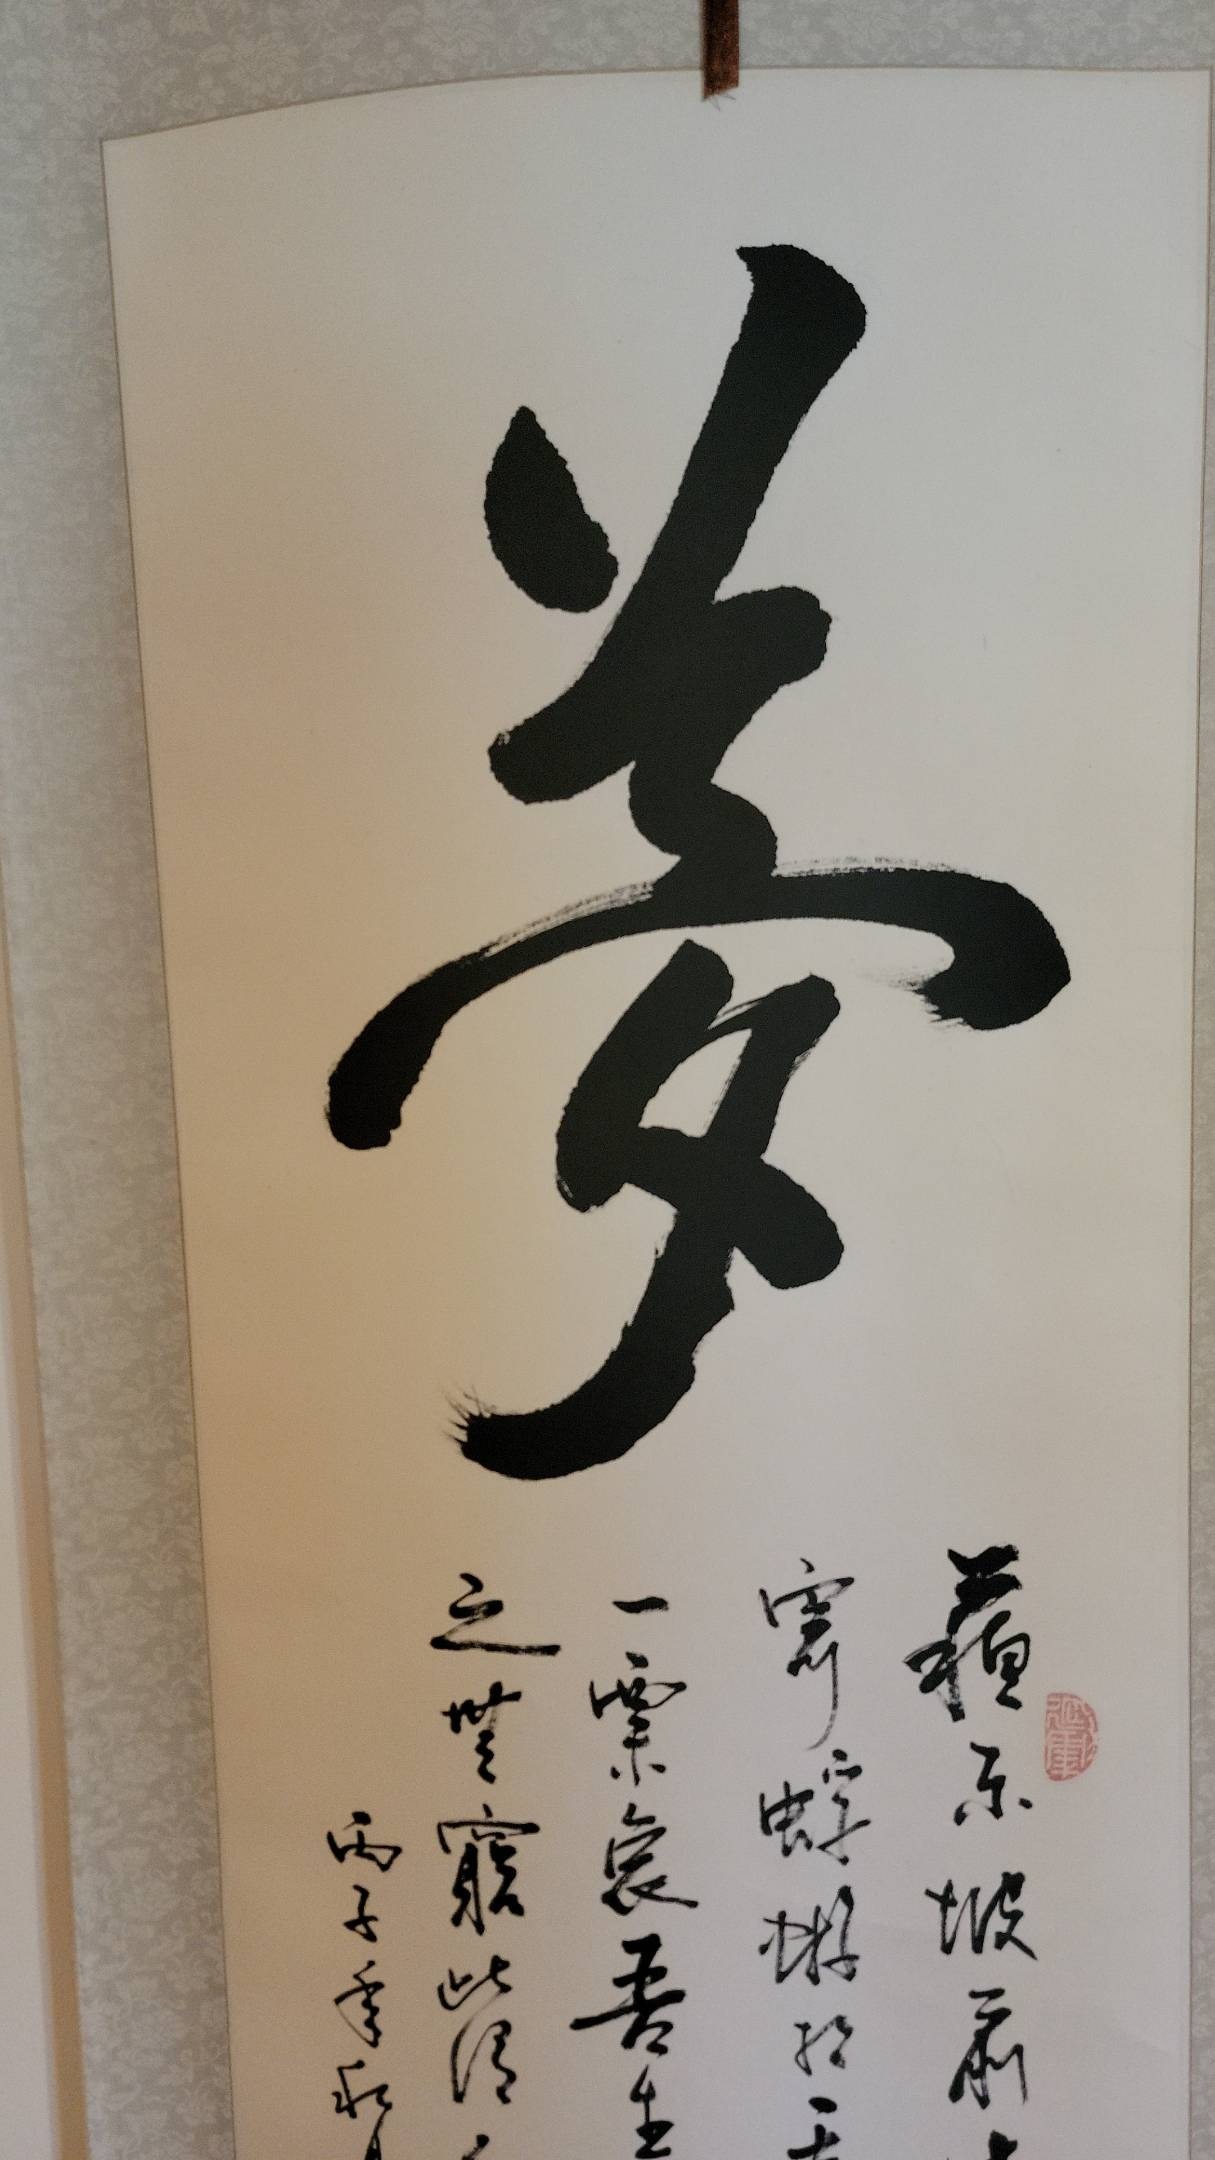 夢
蘓东坡前赤
寄蜉蝣於天
一粟哀吾生
之無窮此謂
丙子年秋月